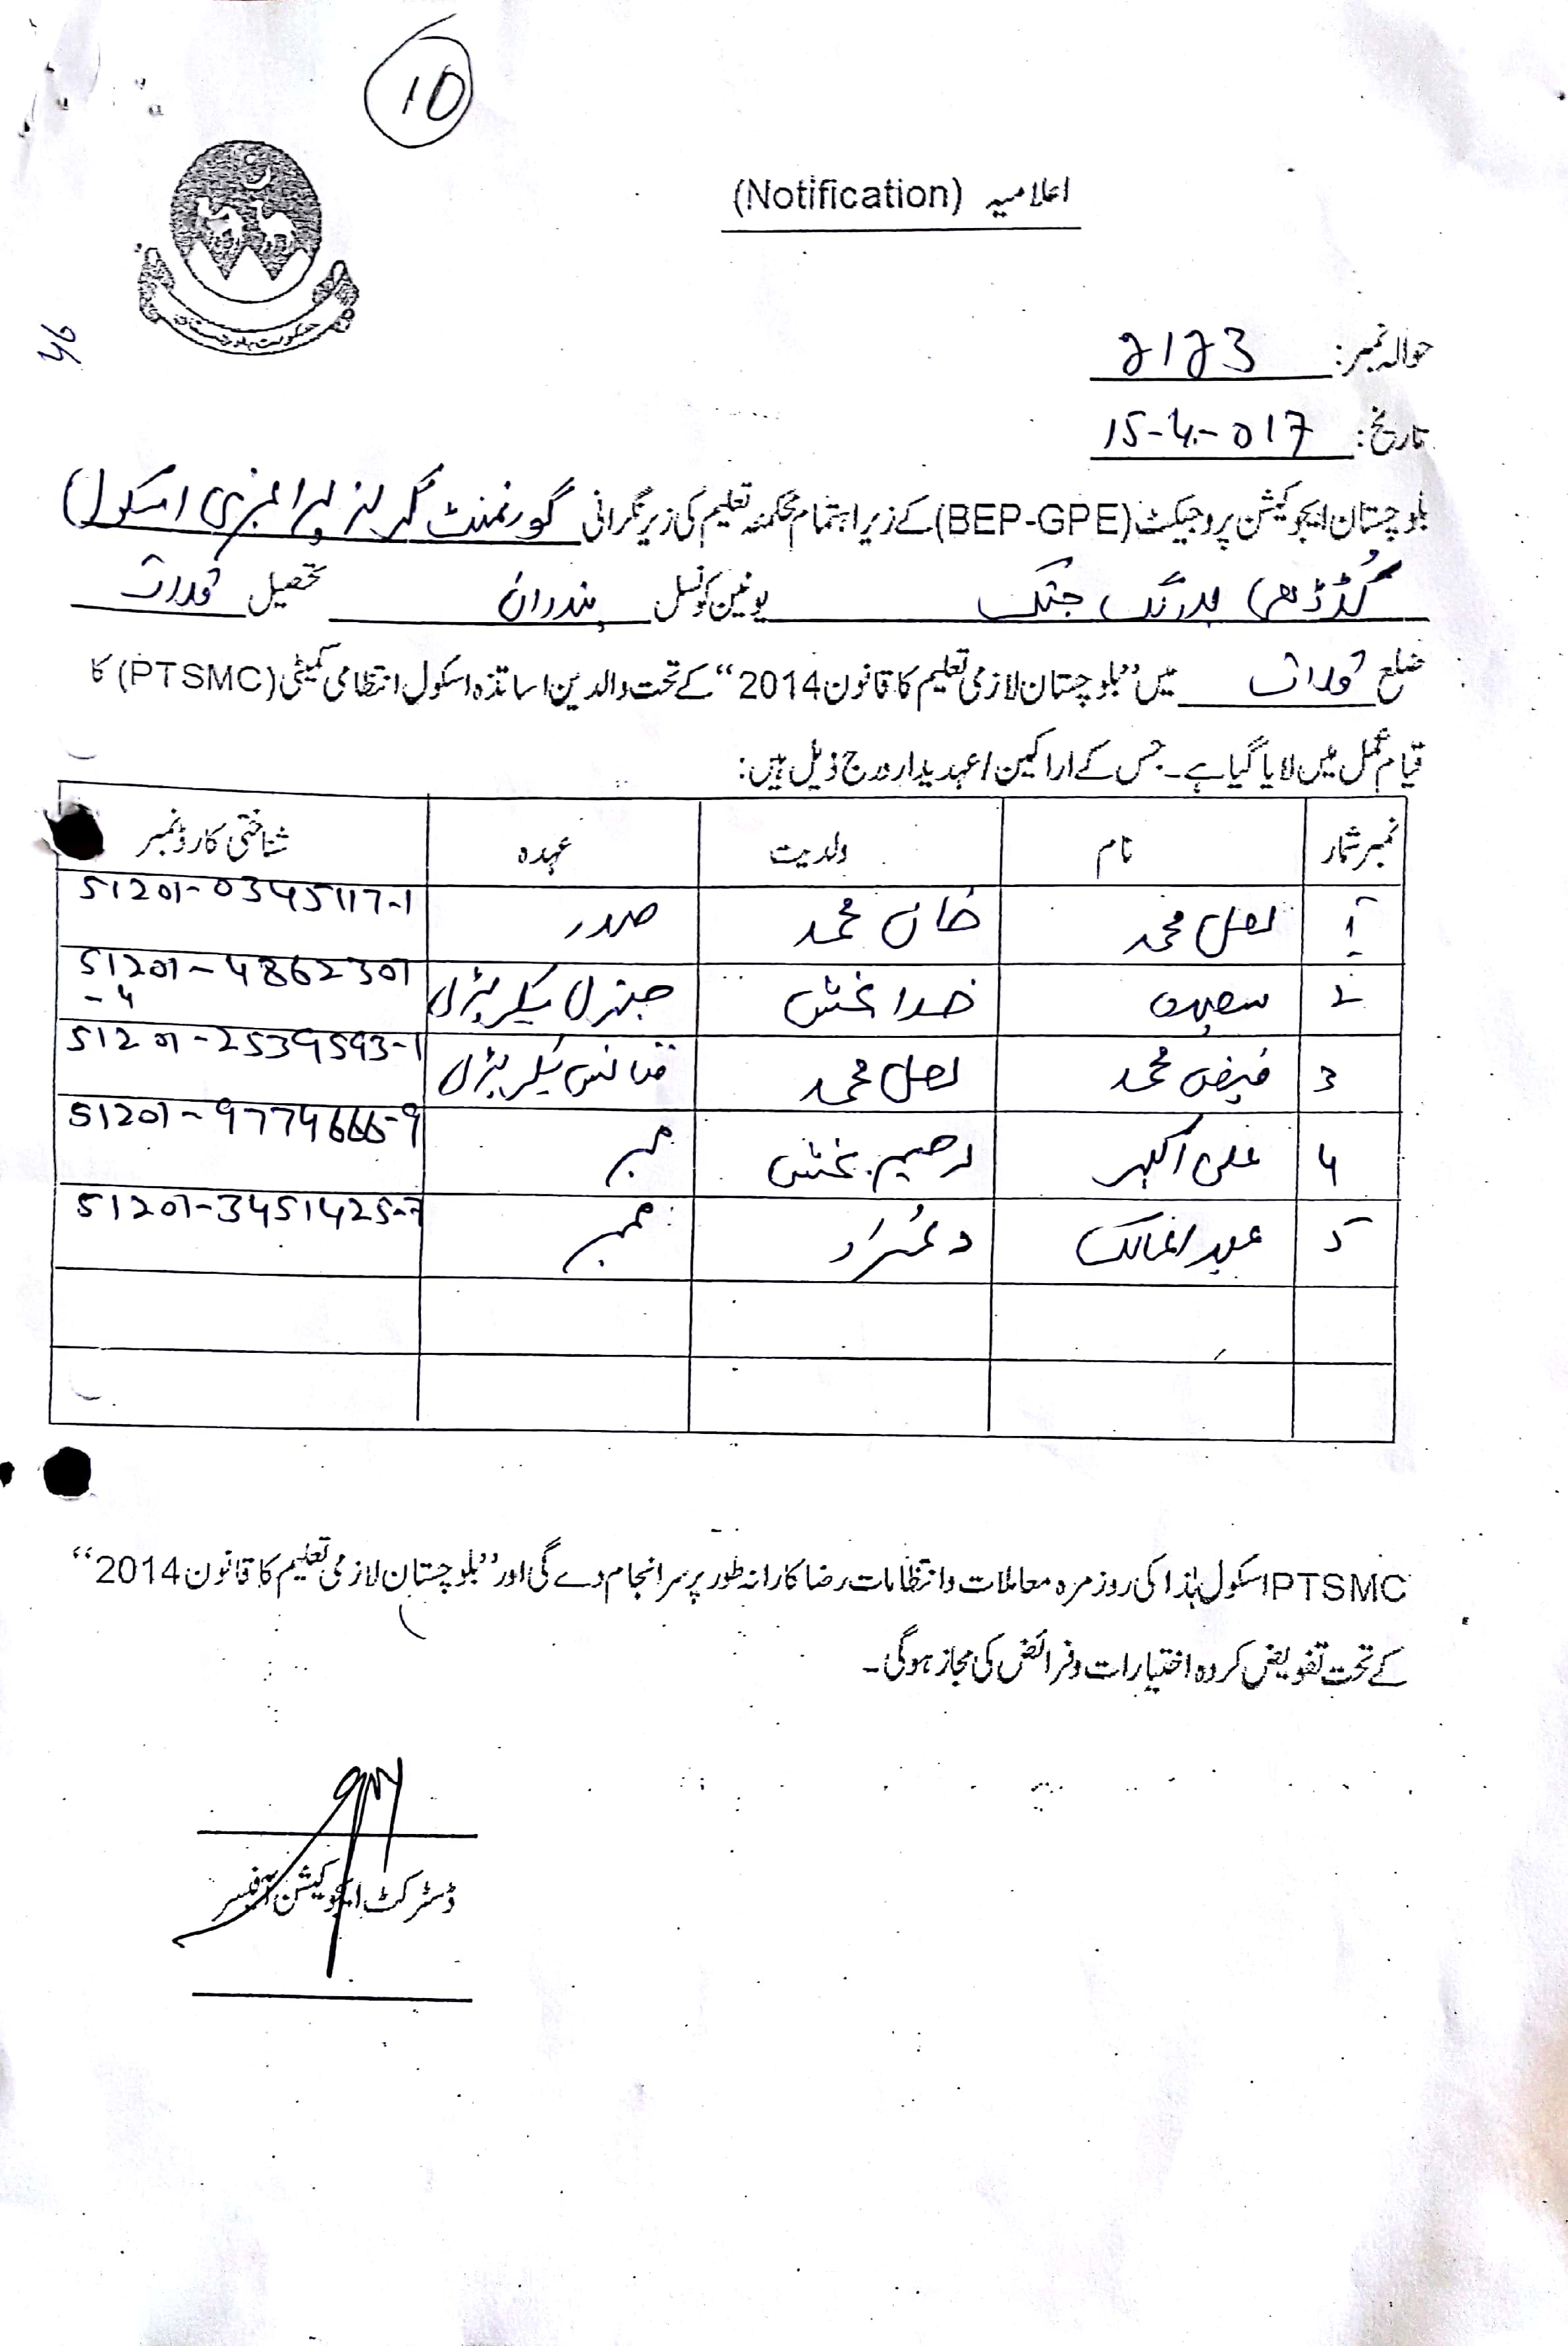 10
اعلامیہ (Notification)
حکومت بلوچستان
46
حوالہ نمبر: 2123
تاریخ: 15-4-017
بلوچستان ایجوکیشن پروجیکٹ (BEP-GPE) کے زیر اہتمام محکمہ تعلیم کی زیر نگرانی گورنمنٹ گرلز پرائمری اسکول
جتک یونین کونسل پندران تحصیل قلات
ضلع قلات میں "بلوچستان لازمی تعلیم کا قانون 2014" کے تحت والدین اساتذہ اسکول انتظامی کمیٹی (PTSMC) کا
قیام عمل میں لایا گیا ہے۔ جس کے اراکین / عہدیدار درج ذیل ہیں:
نمبر شمار نام ولدیت عہدہ شناختی کارڈ نمبر
1 لعل محمد خان محمد صدر 51201-0345117-1
2 خدا بخش جنرل سیکریٹری 51201-4862301-4
3 فیض محمد لعل محمد فنانس سیکریٹری 51201-2539593-1
4 علی اکبر رحیم بخش ممبر 51201-9774666-9
5 عبد المالک ممبر 51201-3451425-7
PTSMC اسکول ہذا کی روزمرہ معاملات و انتظامات رضا کارانہ طور پر سرانجام دے گی اور "بلوچستان لازمی تعلیم کا قانون 2014"
کے تحت تفویض کردہ اختیارات و فرائض کی مجاز ہوگی۔
ڈسٹرکٹ ایجوکیشن آفیسر